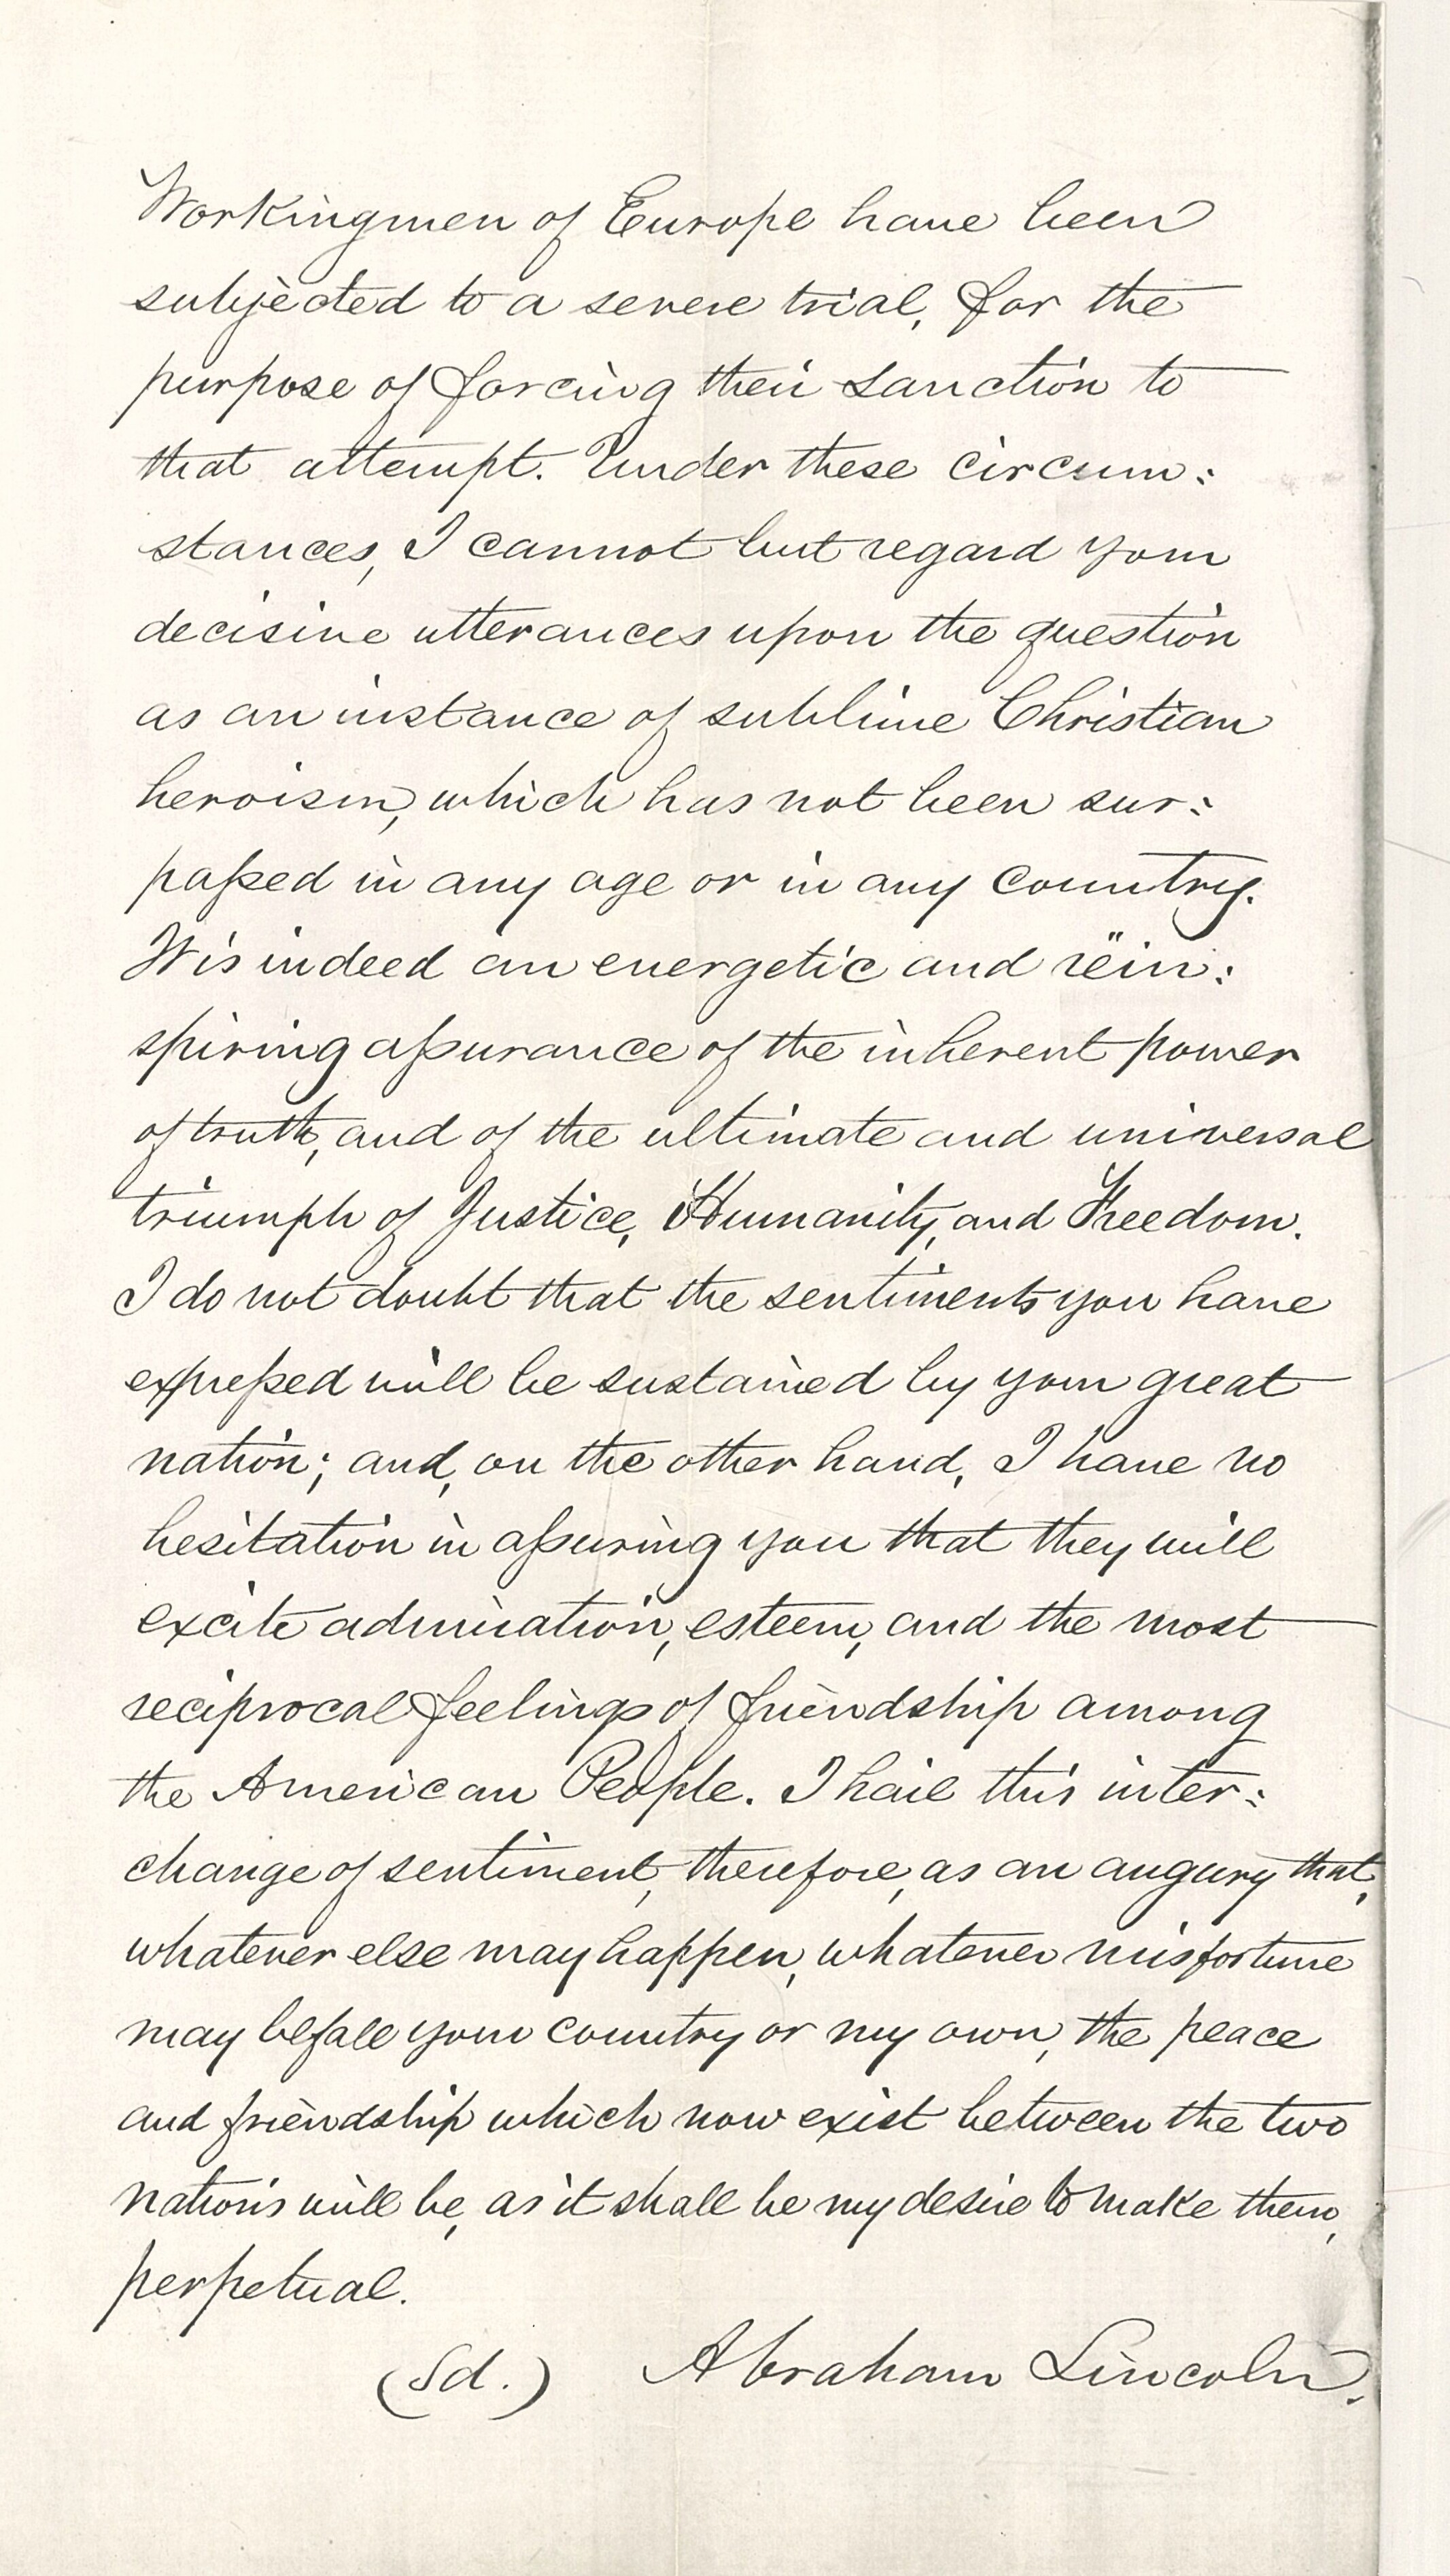 Workingmen of Europe have been
subjected to a severe trial, for the
purpose of forcing their sanction to
that attempt. Under these circum:
stances, I cannot but regard your
decisive utterances upon the question
as an instance of sublime Christian
heroism, which has not been sur:
paſsed in any age or in any country.
It is indeed an energetic and rëin:
spiring aſsurance of the inherent power
of truth, and of the ultimate and universal
triumph of Justice, Humanity, and Freedom.
I do not doubt that the sentiments you have
expreſsed will be sustained by your great
nation; and, on the other hand, I have no
hesitation in aſsuring you that they will
excite admiration, esteem, and the most
reciprocal feelings of friendship among
the American People. I hail this inter:
change of sentiment, therefore, as an augury that,
whatever else may happen, whatever misfortune
may befall your country or my own, the peace
and friendship which now exist between the two
nations will be, as it shall be my desire to make them,
perpetual.
(Sd.) Abraham Lincoln.